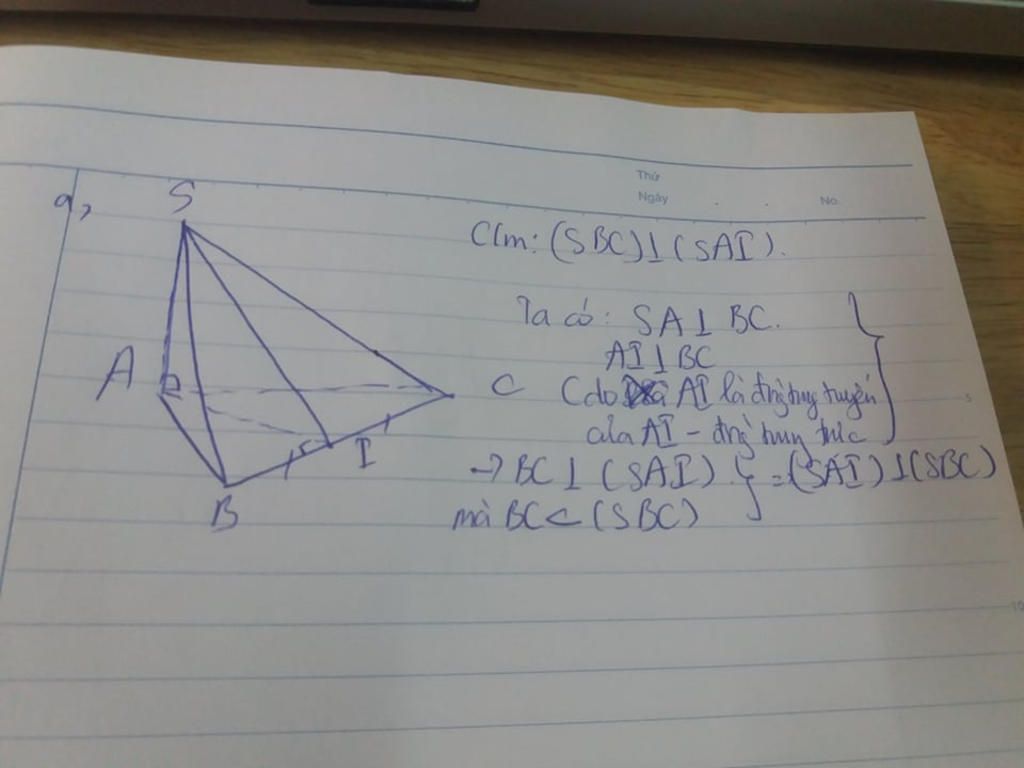 Thứ
Ngày
No.
a,
S
A
B
C
I
C/m: (SBC)⊥(SAI).
Ta có: SA⊥BC.
AI⊥BC
(do AI là đg trung tuyến
của AI - đg trung trực
→ BC⊥(SAI)
mà BC⊂(SBC)
=(SAI)⊥(SBC)
5
10